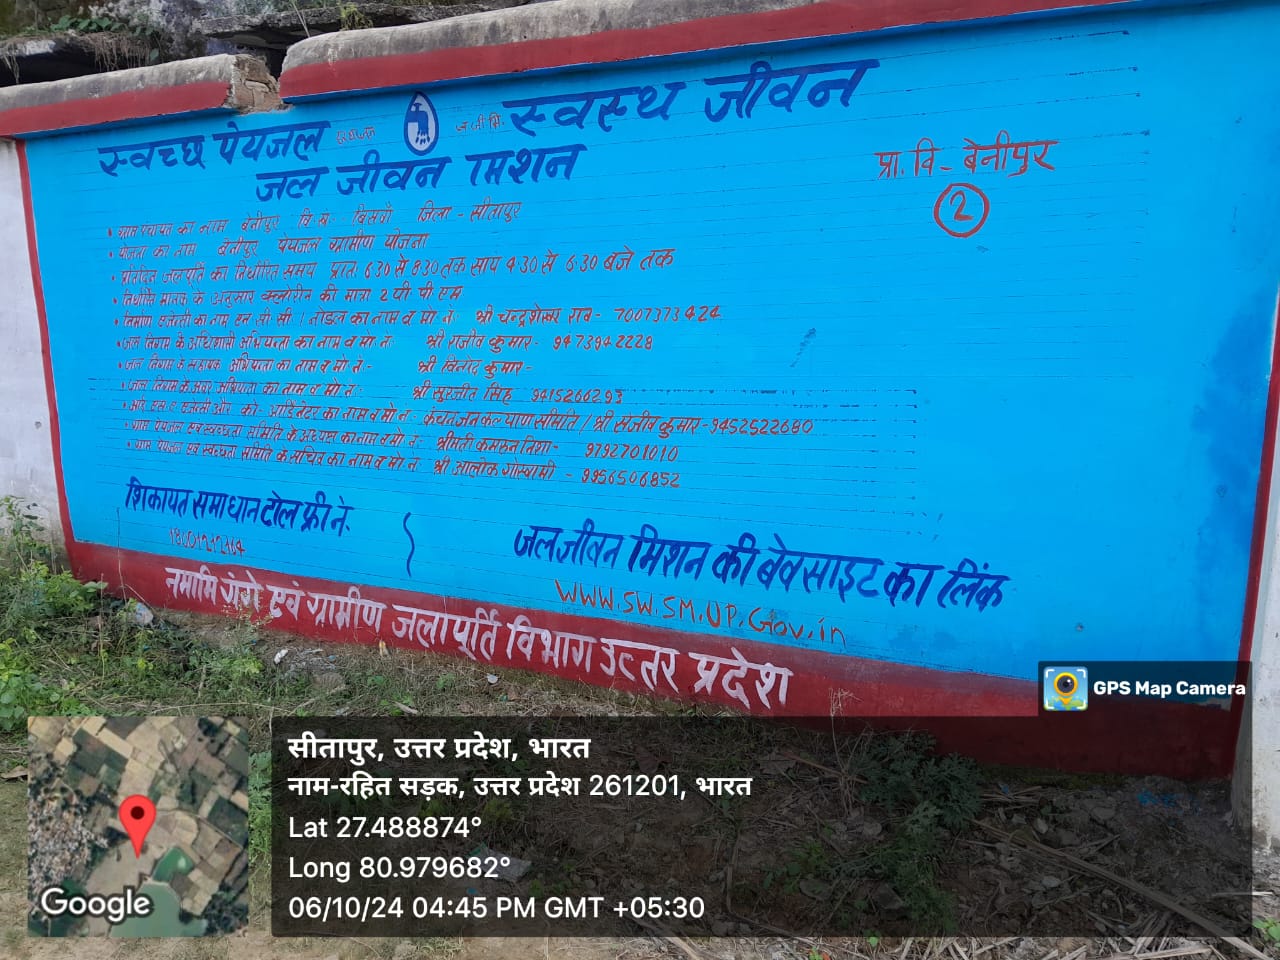 स्वच्छ पेयजल स्वस्थ जीवन
जल जीवन मिशन
प्रा. वि - बेनीपुर
2
• ग्राम पंचायत का नाम बेनीपुर वि. ख. बिसवाँ जिला - सीतापुर
• योजना का नाम बेनीपुर पेयजल ग्रामीण योजना
• प्रतिदिन जलपूर्ति का निर्धारित समय प्रातः 6:30 से 8:30 तक सायं 4:30 से 6:30 बजे तक
• निर्धारित मानक के अनुसार क्लोरीन की मात्रा 2 पी पी एम
• निर्माण एजेन्सी का नाम एन सी सी / नोडल का नाम व मो. नं. श्री चन्द्रशेखर राव - 7007373424
• जल निगम के अधिशासी अभियन्ता का नाम व मो नं: श्री राजीव कुमार - 9473942228
• जल निगम के सहायक अभियन्ता का नाम व मो नं:- श्री विनोद कुमार -
• जल निगम के अवर अभियन्ता का नाम व मो नं: श्री सुरजीत सिंह 9415266293
• आई एस ए एजेन्सी और को-आर्डिनेटर का नाम व मो नं - कंचन जन कल्याण समिति / श्री संजीव कुमार - 9452522680
• ग्राम पेयजल एवं स्वच्छता समिति के अध्यक्ष का नाम व मो नं: श्रीमती कमरुन निशा - 9792701010
• ग्राम पेयजल एवं स्वच्छता समिति के सचिव का नाम व मो नं: श्री आलोक गोस्वामी - 9956506852
शिकायत समाधान टोल फ्री नं.
जल जीवन मिशन की बेवसाइट का लिंक
WWW.SW.SM.UP.Gov.in
नमामि गंगे एवं ग्रामीण जलापूर्ति विभाग उत्तर प्रदेश
GPS Map Camera
सीतापुर, उत्तर प्रदेश, भारत
नाम-रहित सड़क, उत्तर प्रदेश 261201, भारत
Lat 27.488874°
Long 80.979682°
06/10/24 04:45 PM GMT +05:30
Google